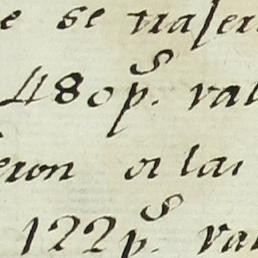 e se traser
480 p.s val
eron
122 p.s val